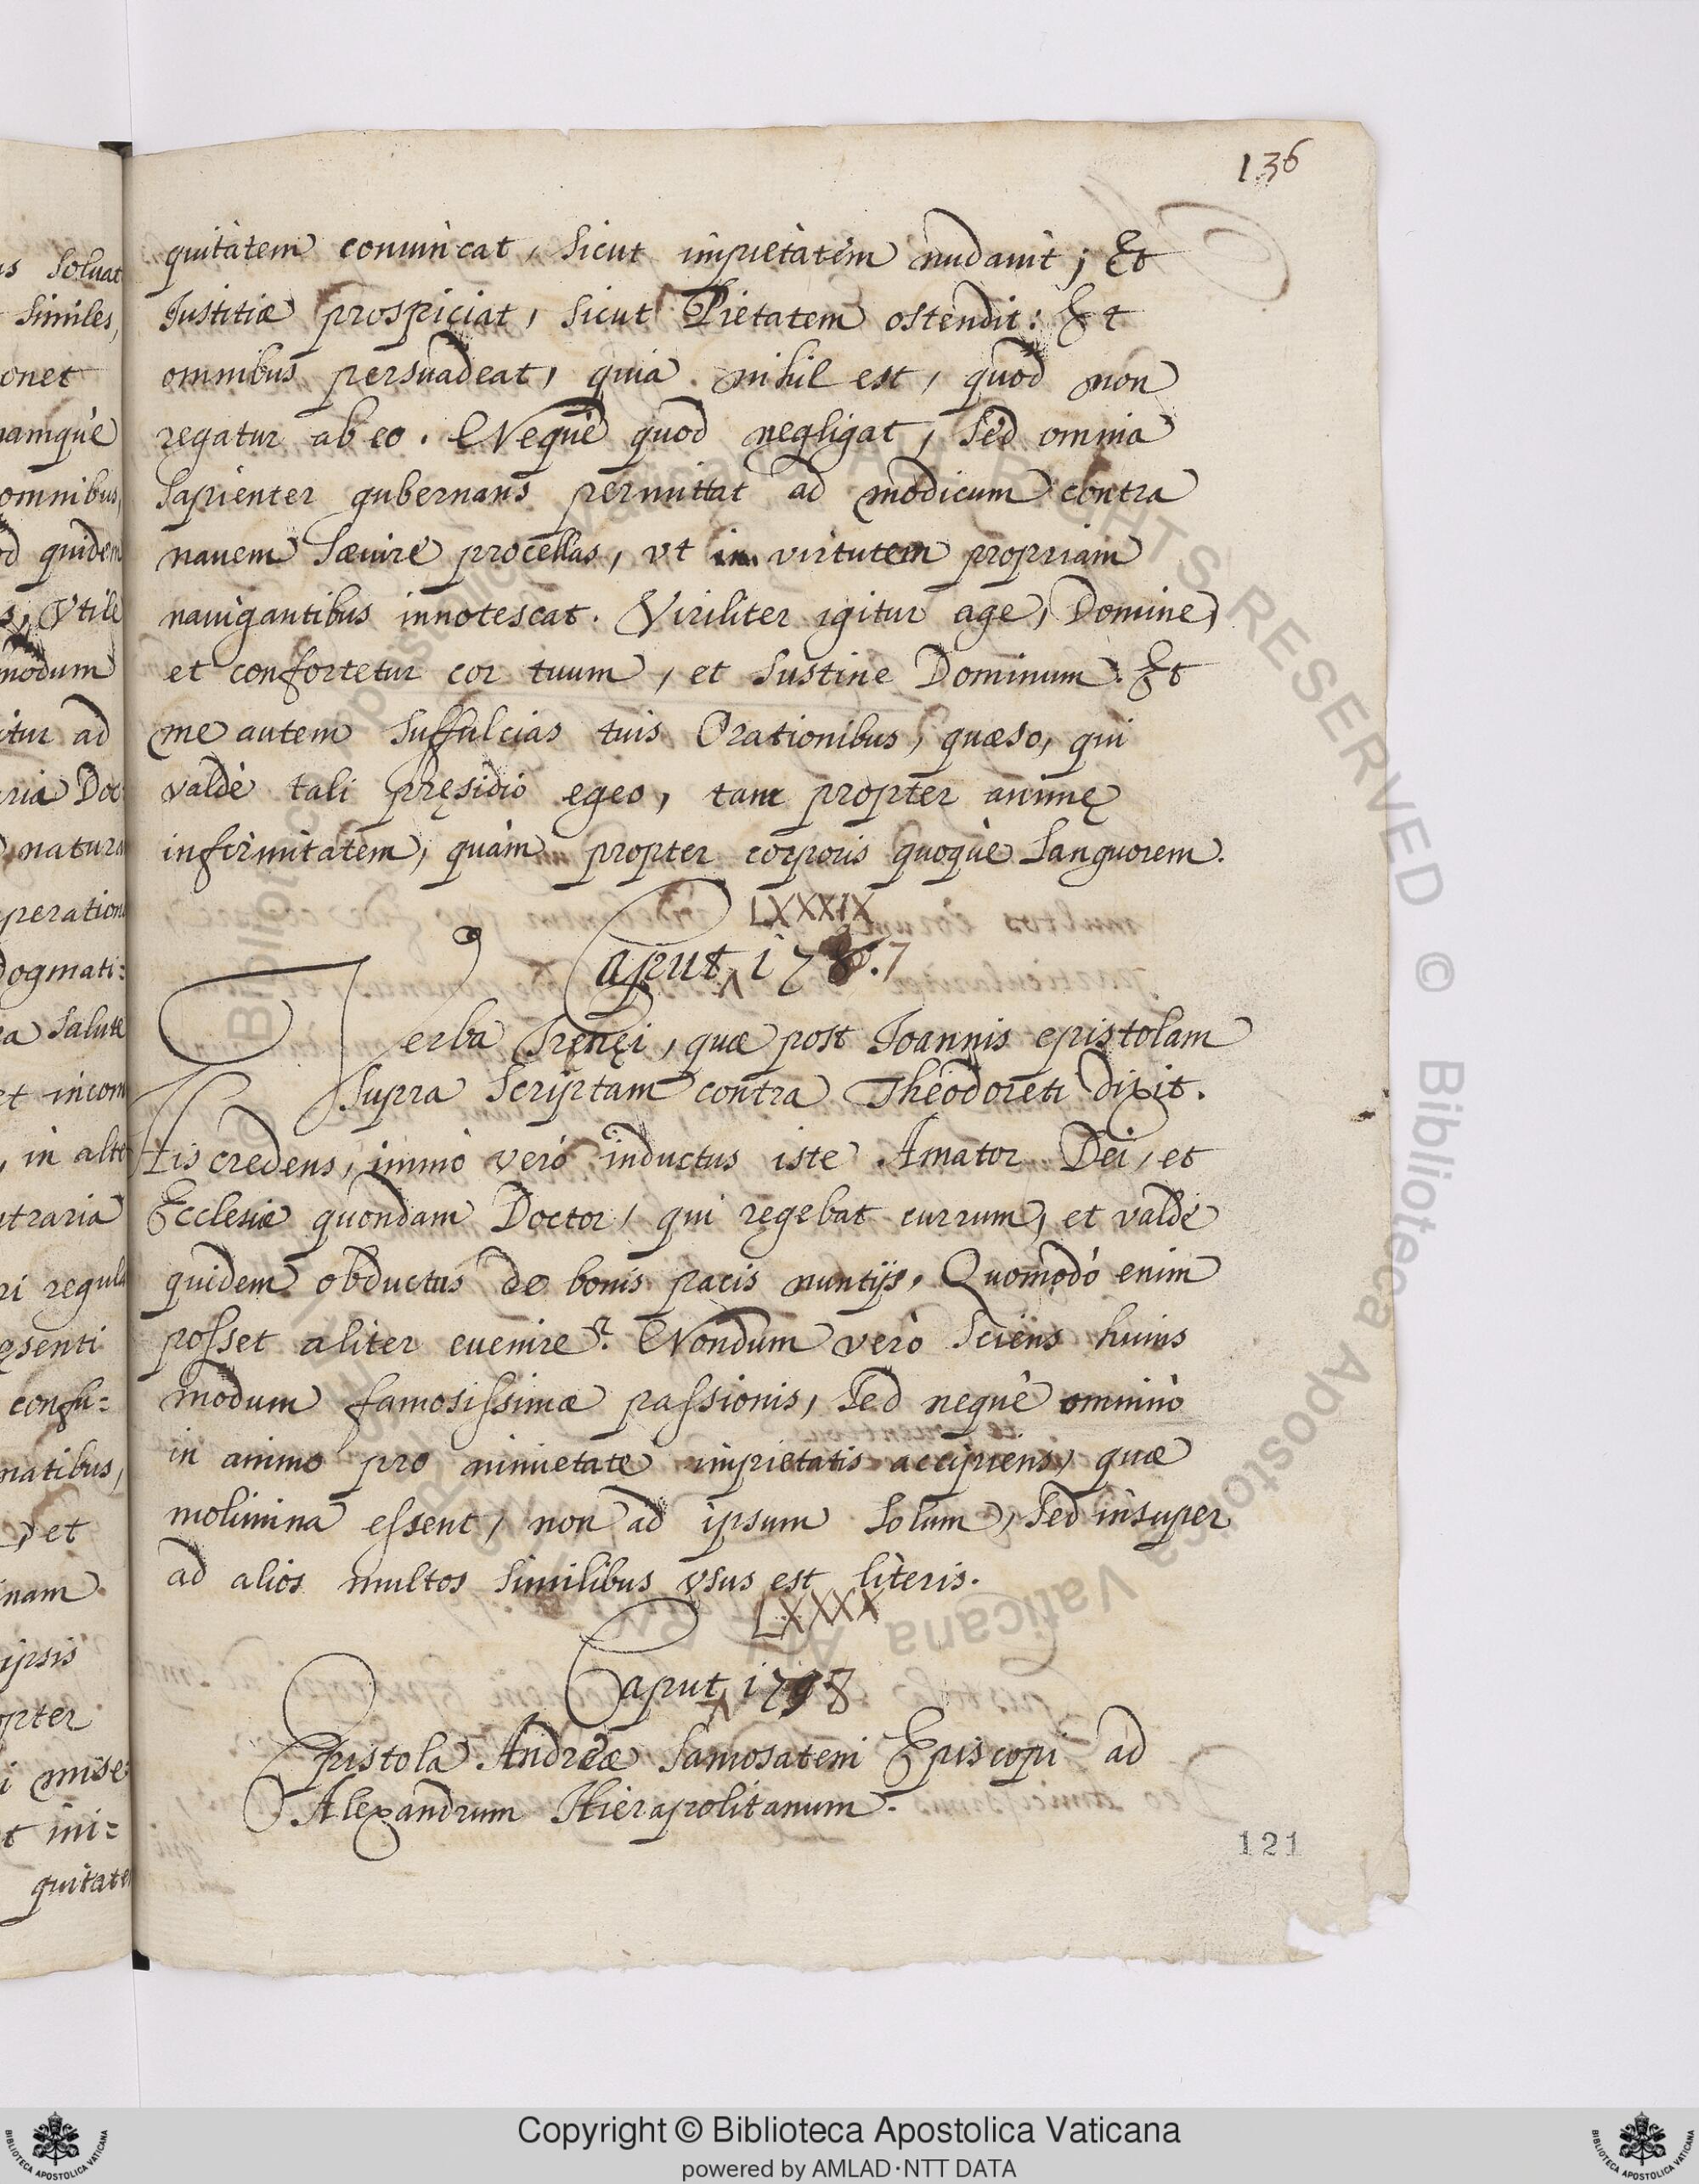 136
quitatem conuincat, sicut impietatem nudauit; Et
Iustitiæ prospiciat, sicut Pietatem ostendit: Et
omnibus persuadeat, quia nihil est, quod non
regatur ab eo. Nequè quod negligat, sed omnia
sapienter gubernans permittat ad modicum contra
nauem sæuire procellas, vt in virtutem propriam
nauigantibus innotescat. Viriliter igitur age, Domine,
et confortetur cor tuum, et sustine Dominum. Et
me autem suffulcias tuis Orationibus, quæso, qui
valdè tali pręsidio egeo, tam propter animę
infirmitatem, quàm propter corporis quoquè languorem.
LXXXIX
Caput 178.7
Verba Irenęi, quæ post Ioannis epistolam
supra scriptam contra Theodoreti dixit.
His credens, immò verò inductus iste Amator Dei, et
Ecclesiæ quondam Doctor, qui regebat currum, et valdè
quidem obductus de bonis pacis nuntijs. Quomodò enim
posset aliter euenire? Nondum verò sciens huius
modum famosissimæ passionis, sed nequè omninò
in animo pro nimietate impietatis accipiens, quæ
molimina essent, non ad ipsum solum, sed insuper
ad alios multos similibus vsus est literis.
LXXXX
Caput 1798
Epistola Andreæ Samosateni Episcopi ad
Alexandrum Hierapolitanum.
121
is soluat
similes,
onet
namquè
omnibus,
od quidem
s, Vtile
modum
itur ad
ria Doc
natura
peration
Dogmati:
ra salute
et incom
, in alte
ntraria
ri regula
ęsenti
confu:
natibus,
, et
nam
ipsis
opter
i mise:
t ini:
quitatem
© Biblioteca Apostolica Vaticana ALL RIGHTS RESERVED
Copyright © Biblioteca Apostolica Vaticana
powered by AMLAD·NTT DATA
BIBLIOTECA APOSTOLICA VATICANA
BIBLIOTECA APOSTOLICA VATICANA